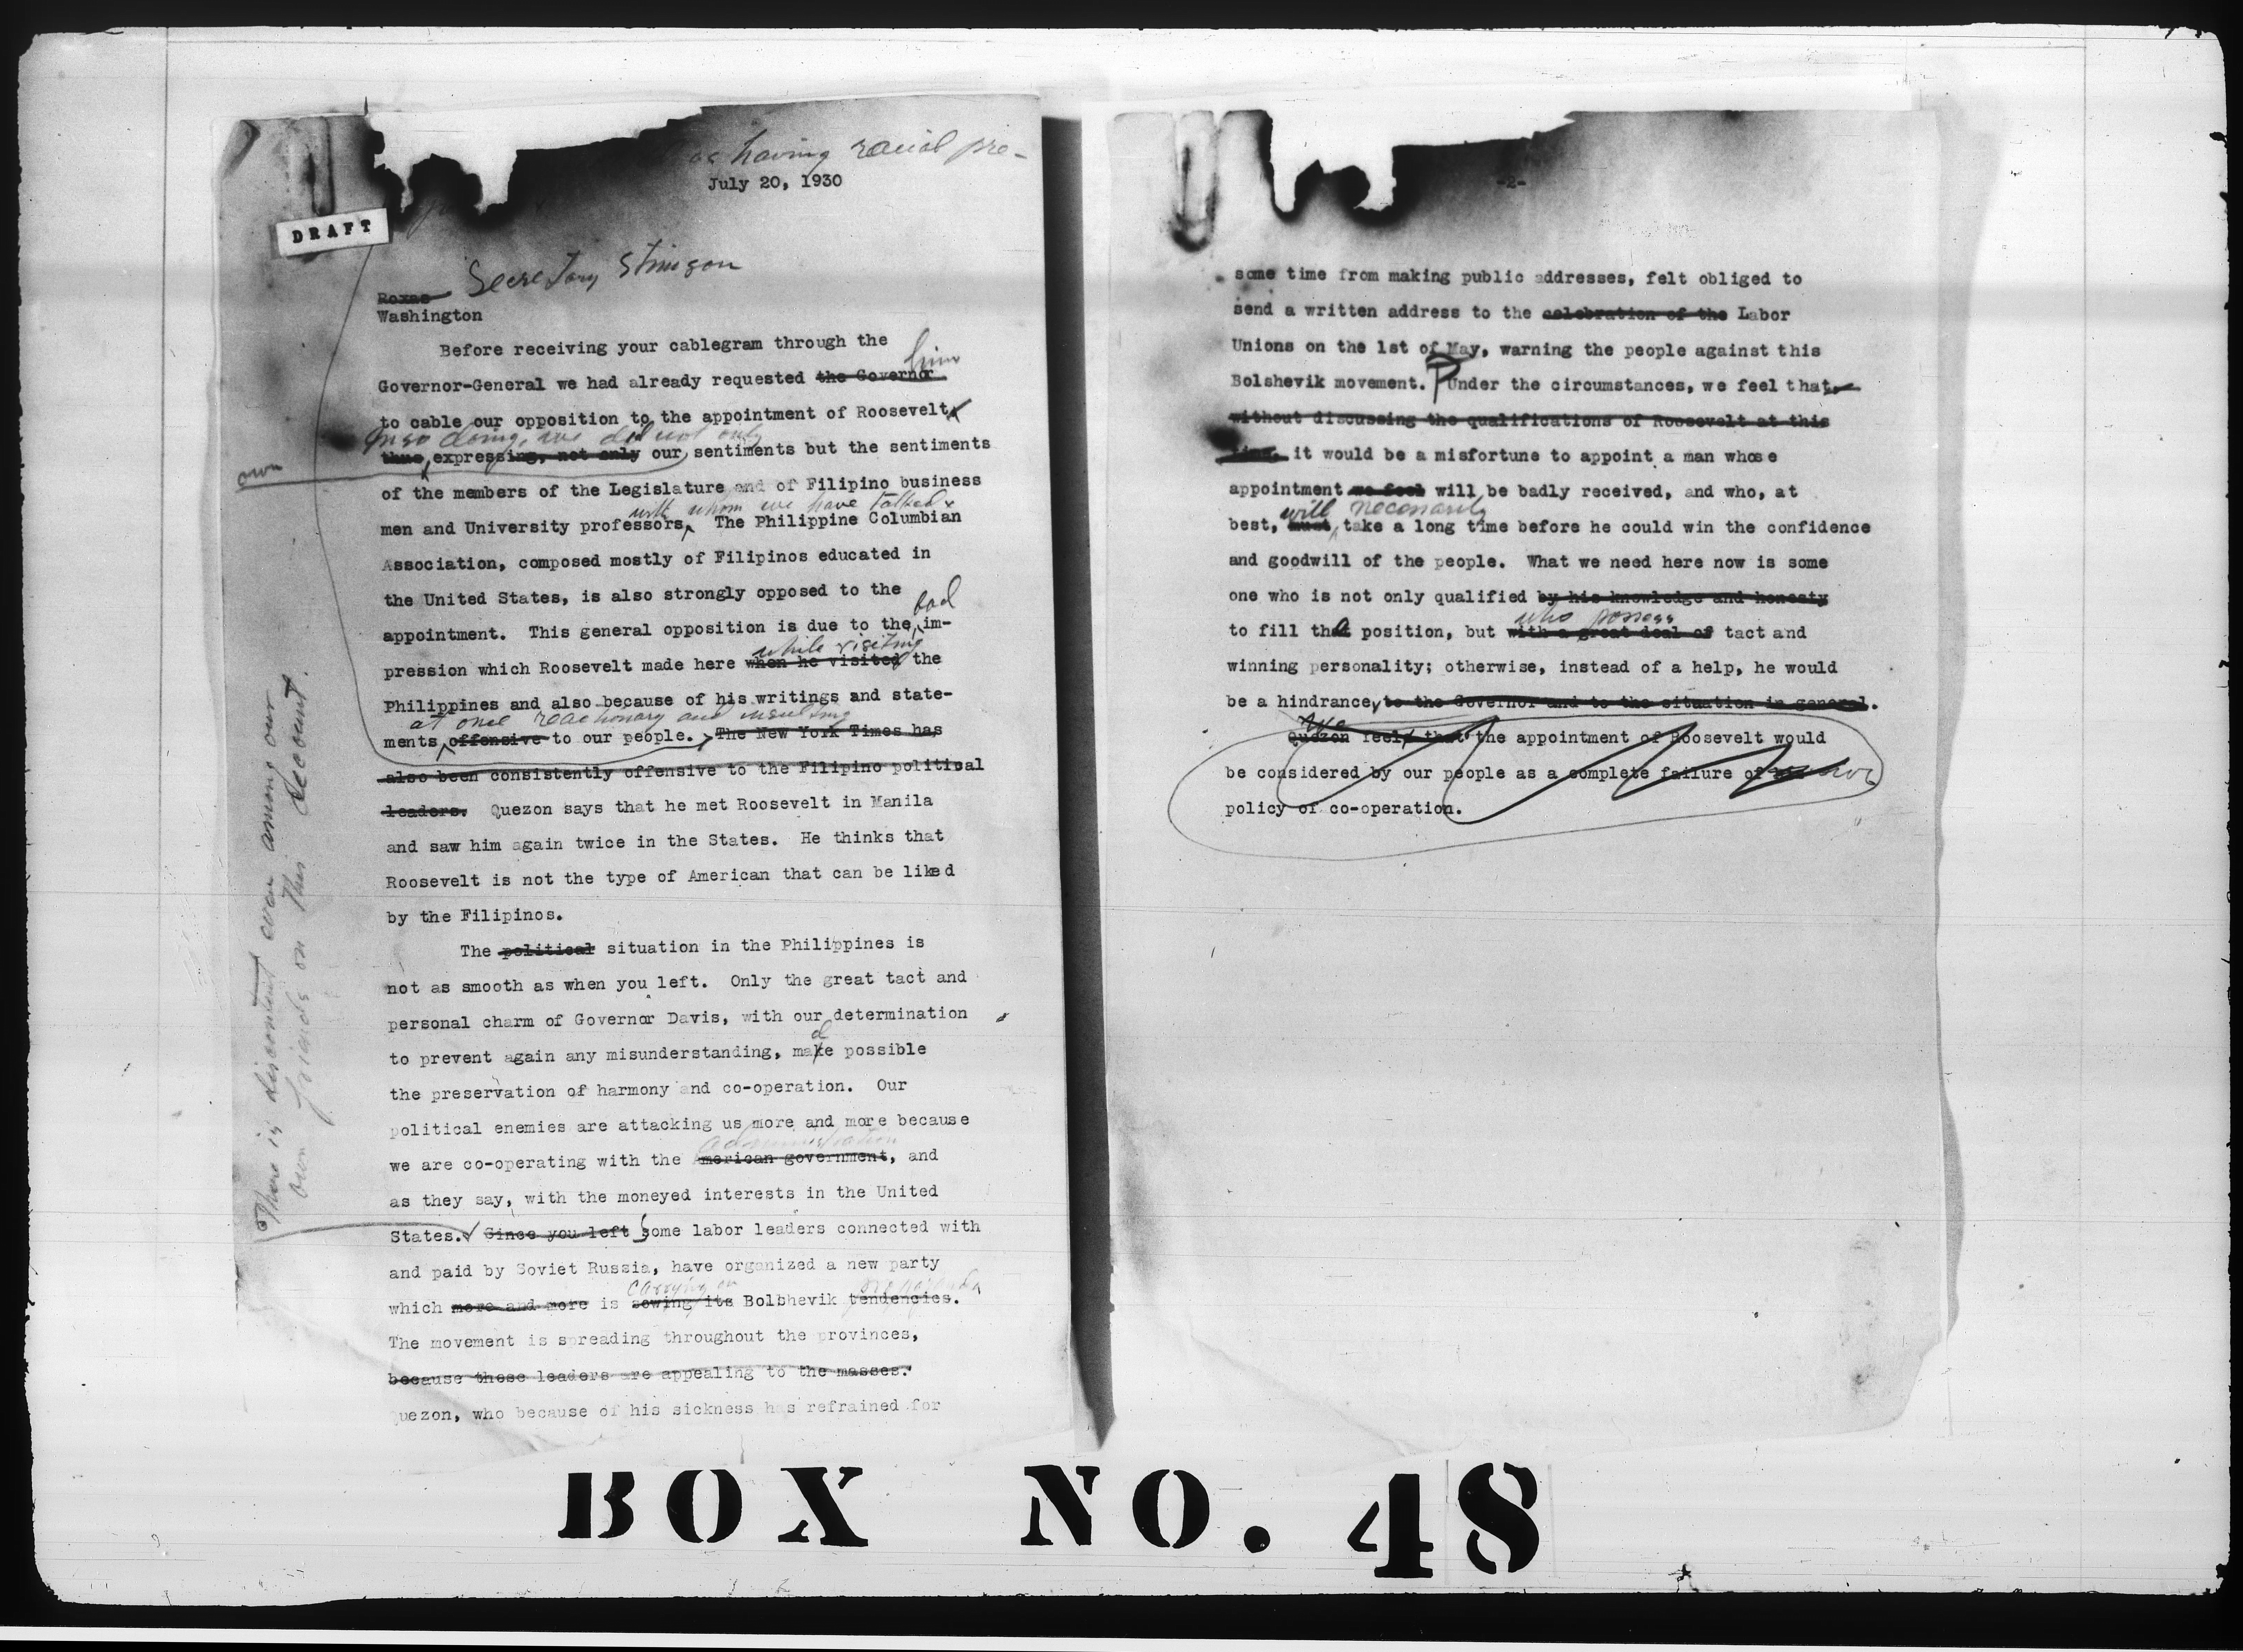 as having racial pre-
July 20, 1930
DRAFT
Secretary Stimson
Roxas
Washington
Before receiving your cablegram through the
him
Governor-General we had already requested the Governor
to cable our opposition to the appointment of Roosevelt
In so doing, we did not only
own
thus expressing, not only our sentiments but the sentiments
of the members of the Legislature and of Filipino business
with whom we have talked
men and University professors. The Philippine Columbian
Association, composed mostly of Filipinos educated in
the United States, is also strongly opposed to the
bad
appointment. This general opposition is due to the im-
while visiting
pression which Roosevelt made here when he visited the
Philippines and also because of his writings and state-
at once reactionary and insulting
ments offensive to our people. The New York Times has
also been consistently offensive to the Filipino political
leaders. Quezon says that he met Roosevelt in Manila
and saw him again twice in the States. He thinks that
Roosevelt is not the type of American that can be liked
by the Filipinos.
The political situation in the Philippines is
not as smooth as when you left. Only the great tact and
personal charm of Governor Davis, with our determination
d
to prevent again any misunderstanding, make possible
the preservation of harmony and co-operation. Our
political enemies are attacking us more and more because
administration
we are co-operating with the American government, and
as they say, with the moneyed interests in the United
States. Since you left some labor leaders connected with
and paid by Soviet Russia, have organized a new party
carrying on propaganda
which more and more is sowing its Bolshevik tendencies.
The movement is spreading throughout the provinces,
because these leaders are appealing to the masses.
Quezon, who because of his sickness has refrained for
There is discontent even among our
own friends on this account.
-2-
some time from making public addresses, felt obliged to
send a written address to the celebration of the Labor
Unions on the 1st of May, warning the people against this
Bolshevik movement. Under the circumstances, we feel that,
without discussing the qualifications of Roosevelt at this
time, it would be a misfortune to appoint a man whose
appointment we feel will be badly received, and who, at
will necessarily
best, must take a long time before he could win the confidence
and goodwill of the people. What we need here now is some
one who is not only qualified by his knowledge and honesty
who possess
to fill the position, but with a great deal of tact and
winning personality; otherwise, instead of a help, he would
be a hindrance, to the Governor and to the situation in general.
We
Quezon feels that the appointment of Roosevelt would
be considered by our people as a complete failure of our
policy of co-operation.
BOX NO. 48